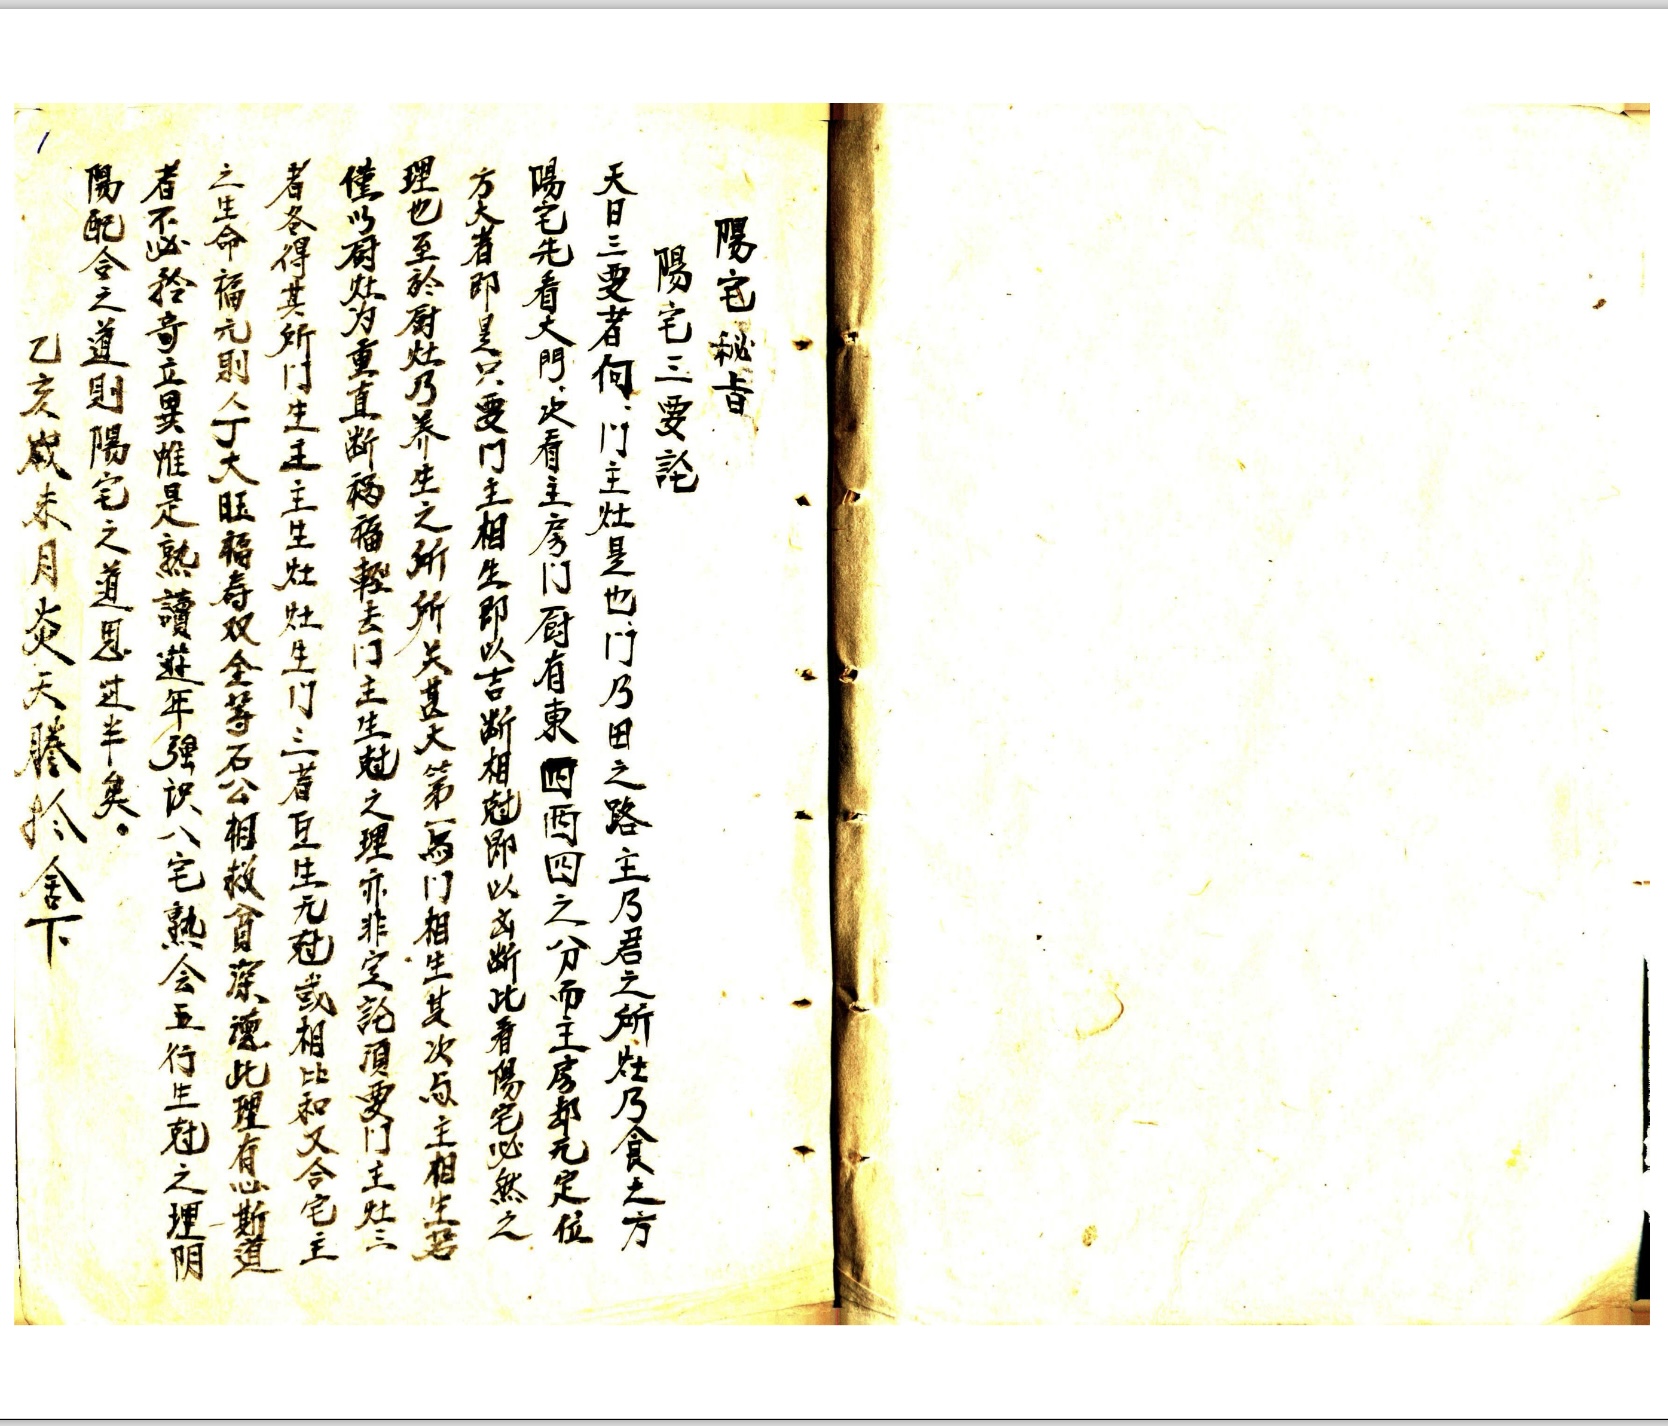 陽宅秘旨
陽宅三要論
天日三要者何、门主灶是也、门乃田之路主乃君之所灶乃食之方
陽宅先看大門、次看主房门厨有東四西四之分而主房却无定位
方大者即是只要门主相生即以吉断相尅即以凶断此看陽宅必然之
理也至於厨灶乃养生之所所关甚大第一与门相生其次与主相生若
僅以厨灶为重直断祸福輕去门主生尅之理亦非定論須要门主灶三
者各得其所门生主主生灶灶生门三者互生无尅或相比和又合宅主
之生命福元則人丁大旺福寿双全等石公相救貧深懂此理有心斯道
者不必矜奇立異惟是熟讀遊年强识八宅熟会五行生尅之理阴
陽配合之道則陽宅之道思过半矣。
乙亥歲未月炎天謄於舍下
1